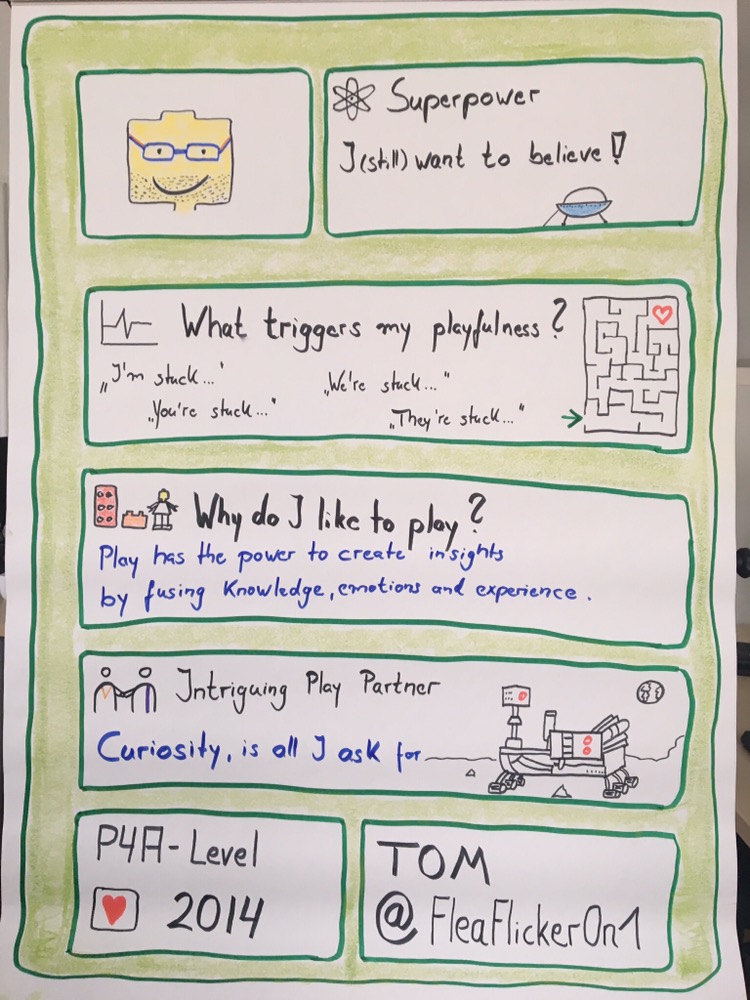 Superpower
I (still) want to believe!
What triggers my playfulness?
„I'm stuck...“
„We're stuck...“
„You're stuck...“
„They're stuck...“
Why do I like to play?
Play has the power to create insights
by fusing Knowledge, emotions and experience.
Intriguing Play Partner
Curiosity, is all I ask for
P4A-Level
2014
TOM
@FleaFlickerOn1